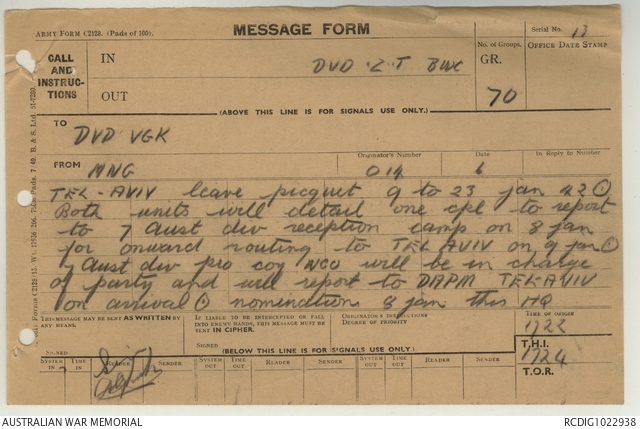 ARMY FORM C2128. (Pads of 100).
MESSAGE FORM
Serial No. 13
CALL
AND
INSTRUC-
TIONS
IN
DVD Z T
No. of Groups.
GR.
70
OFFICE DATE STAMP
OUT
(ABOVE THIS LINE IS FOR SIGNALS USE ONLY.)
TO
DVD VGK
FROM
MNG
Originator's Number
014
Date
6
In Reply to Number
TEL-AVIV leave picquet 9 to 23 jan 42
Both units will detail one cpl to report
to 7 Aust div reception camp on 8 jan
for onward routing to TEL AVIV on 9 jan
7 Aust div pro coy NCO will be in charge
of party and will report to DAPM TEL-AVIV
on arrival nominations 8 jan this HQ
THIS MESSAGE MAY BE SENT AS WRITTEN BY
ANY MEANS.
SIGNED
IF LIABLE TO BE INTERCEPTED OR FALL
INTO ENEMY HANDS, THIS MESSAGE MUST BE
SENT IN CIPHER.
SIGNED
ORIGINATOR'S INSTRUCTIONS
DEGREE OF PRIORITY
TIME OF ORIGIN
1722
T.H.I.
1724
T.O.R.
(BELOW THIS LINE IS FOR SIGNALS USE ONLY.)
SYSTEM IN
TIME IN
READER
SENDER
SYSTEM OUT
TIME OUT
READER
SENDER
SYSTEM OUT
TIME OUT
READER
SENDER
AUSTRALIAN WAR MEMORIAL
RCDIG1022938